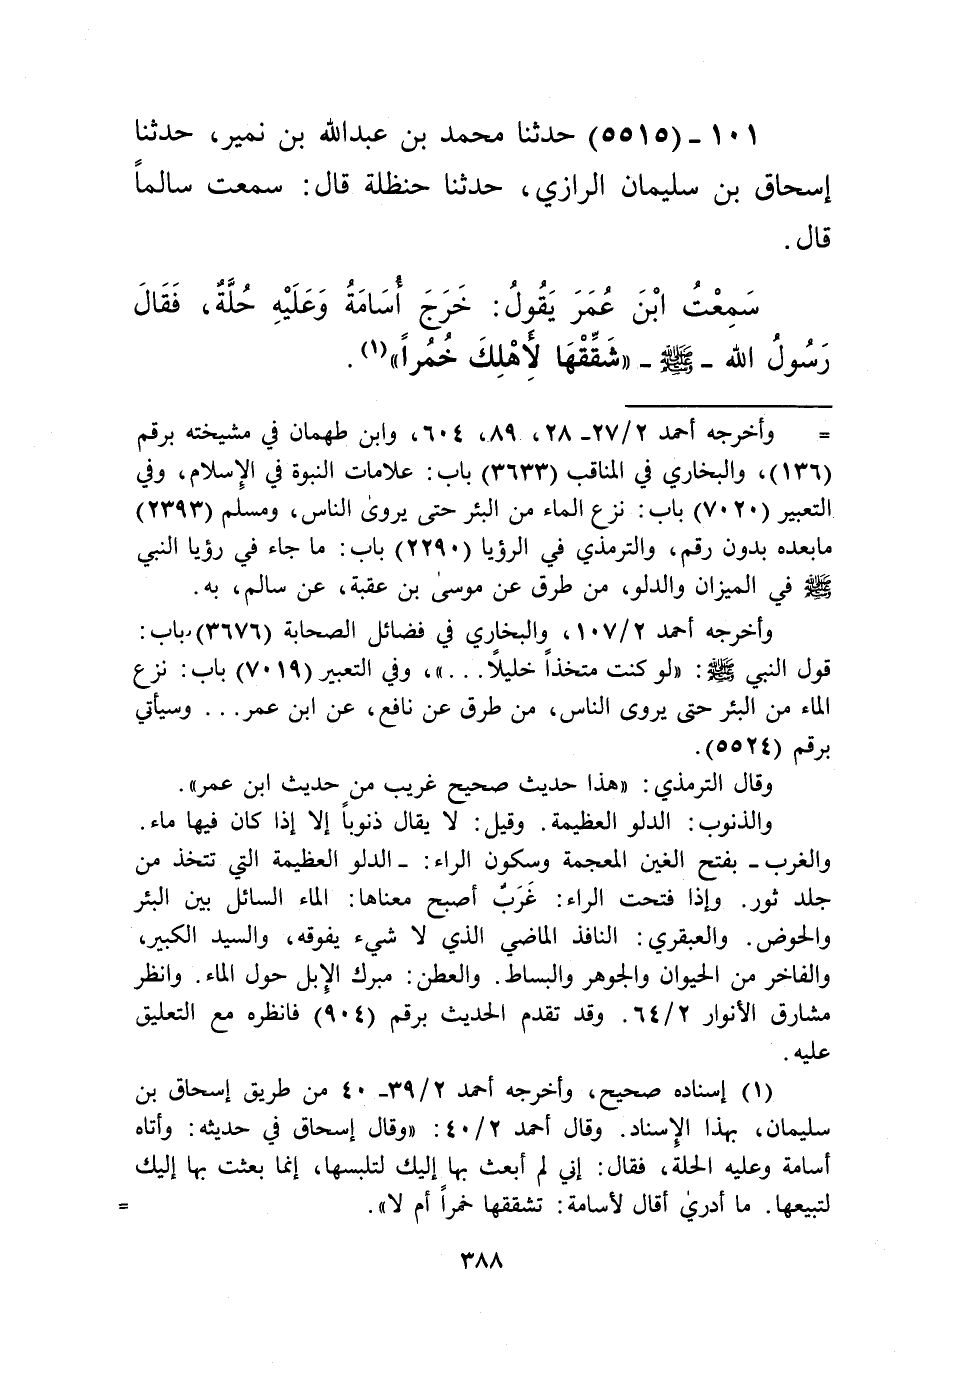 ١٠١ - (٥٥١٥) حدثنا محمد بن عبدالله بن نمير، حدثنا
إسحاق بن سليمان الرازي، حدثنا حنظلة قال: سمعت سالماً
قال.
سَمِعْتُ ابْنَ عُمَرَ يَقُولُ: خَرَجَ أُسَامَةُ وَعَلَيْهِ حُلَّةٌ، فَقَالَ
رَسُولُ الله - ﷺ - «شَقِّقْهَا لأَهْلِكَ خُمُراً»(١).
= وأخرجه أحمد ٢/ ٢٧- ٢٨، ٨٩، ٦٠٤، وابن طهمان في مشيخته برقم
(١٣٦)، والبخاري في المناقب (٣٦٣٣) باب: علامات النبوة في الإسلام، وفي
التعبير (٧٠٢٠) باب: نزع الماء من البئر حتى يروىٰ الناس، ومسلم (٢٣٩٣)
مابعده بدون رقم، والترمذي في الرؤيا (٢٢٩٠) باب: ما جاء في رؤيا النبي
ﷺ في الميزان والدلو، من طرق عن موسىٰ بن عقبة، عن سالم، به.
وأخرجه أحمد ٢/ ١٠٧، والبخاري في فضائل الصحابة (٣٦٧٦) باب:
قول النبي ﷺ: «لو كنت متخذاً خليلًا...»، وفي التعبير (٧٠١٩) باب: نزع
الماء من البئر حتى يروى الناس، من طرق عن نافع، عن ابن عمر... وسيأتي
برقم (٥٥٢٤).
وقال الترمذي: «هذا حديث صحيح غريب من حديث ابن عمر».
والذنوب: الدلو العظيمة. وقيل: لا يقال ذنوباً إلا إذا كان فيها ماء.
والغرب - بفتح الغين المعجمة وسكون الراء: - الدلو العظيمة التي تتخذ من
جلد ثور. وإذا فتحت الراء: غَرَبٌ أصبح معناها: الماء السائل بين البئر
والحوض. والعبقري: النافذ الماضي الذي لا شيء يفوقه، والسيد الكبير،
والفاخر من الحيوان والجوهر والبساط. والعطن: مبرك الإبل حول الماء. وانظر
مشارق الأنوار ٢/ ٦٤. وقد تقدم الحديث برقم (٩٠٤) فانظره مع التعليق
عليه.
(١) إسناده صحيح، وأخرجه أحمد ٢/ ٣٩- ٤٠ من طريق إسحاق بن
سليمان، بهذا الإسناد. وقال أحمد ٢/ ٤٠: «وقال إسحاق في حديثه: وأتاه
أسامة وعليه الحلة، فقال: إني لم أبعث بها إليك لتلبسها، إنما بعثت بها إليك
لتبيعها. ما أدرىٰ أقال لأسامة: تشققها خمراً أم لا». =
٣٨٨